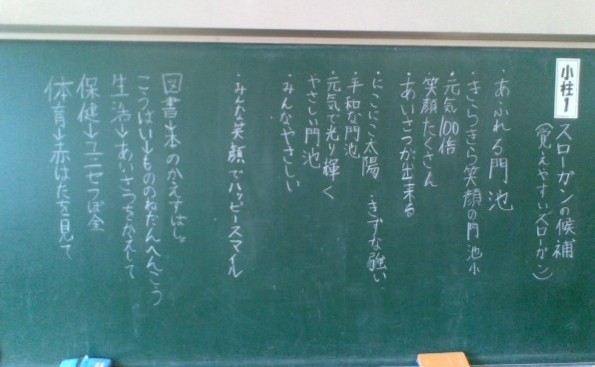 小柱1
スローガンの候補
(覚えやすいスローガン)
・あふれる門池
・きらきら笑顔の門池小
・元気100倍
笑顔たくさん
・あいさつが出来る
・にこにこ太陽 ・きずな強い
・平和な門池
・元気で光り輝く
やさしい門池
・みんなやさしい
・みんな笑顔でハッピースマイル
図書→本のかえすばしょ
こうばい→もののねだんへんこう
生活→あいさつをかえして
保健→ユニセフぼ金
体育→赤はたを見て